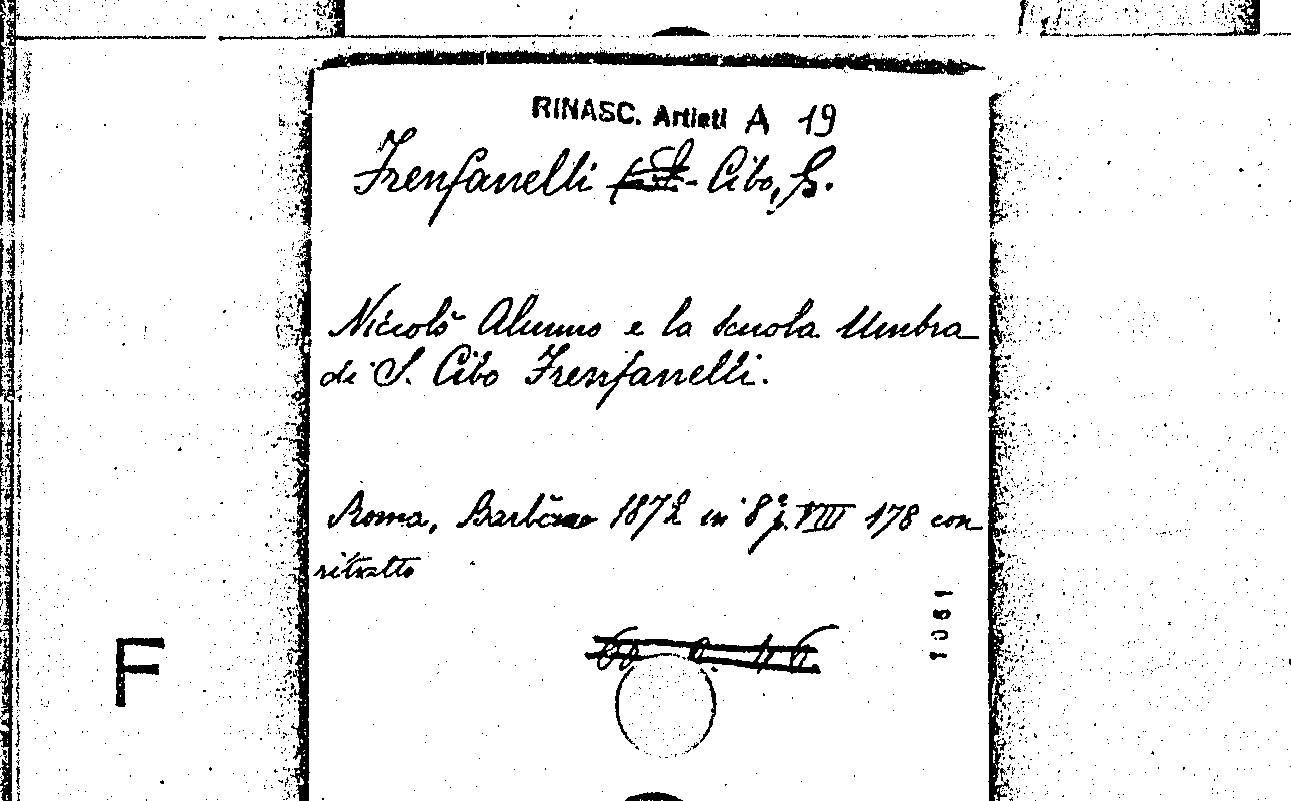 RINASC. Artisti A 19
Frenfanelli Cibo, S.
Niccolò Alunno e la scuola Umbra
di S. Cibo Frenfanelli.
Roma, Barbèra 1872 in 8° p. VIII 178 con
ritratto
1061
F